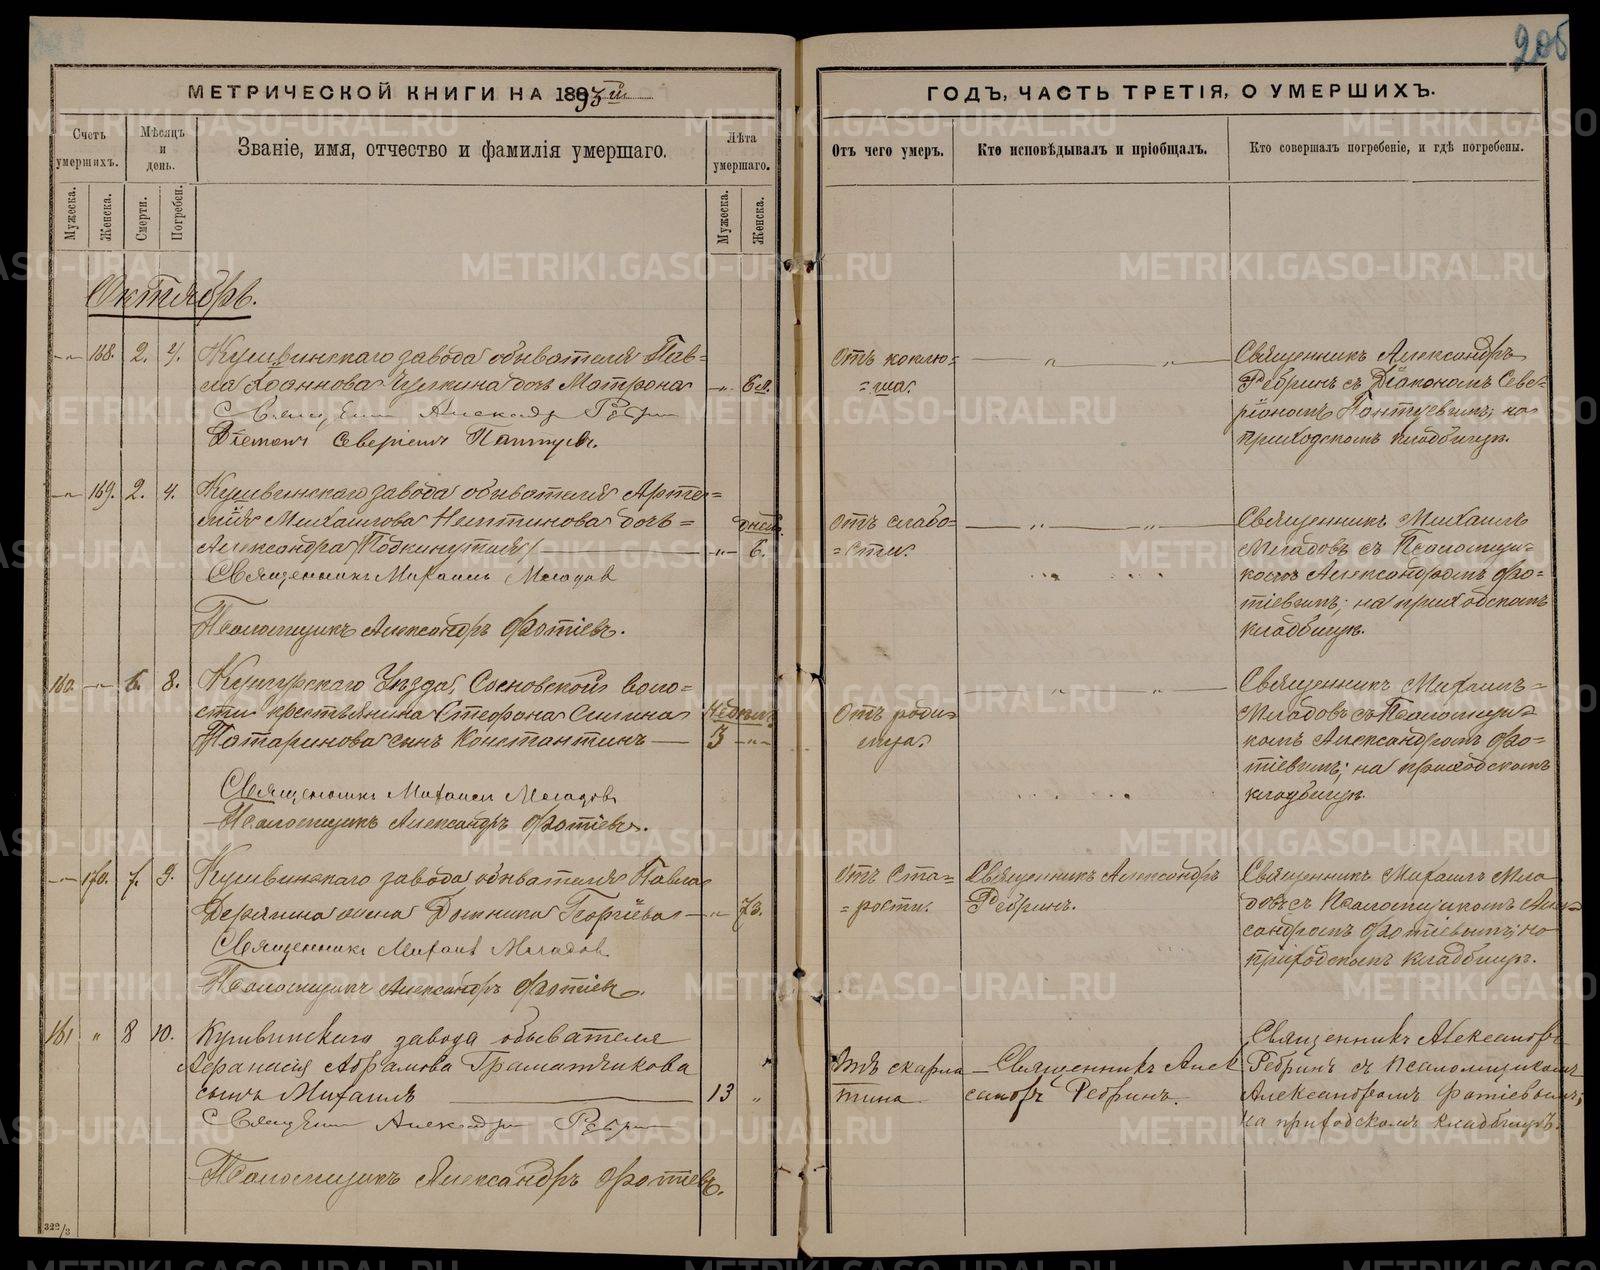 206
МЕТРИЧЕСКОЙ КНИГИ НА 1893й
ГОДЪ, ЧАСТЬ ТРЕТІЯ, О УМЕРШИХЪ.
Счетъ умершихъ.
Мѣсяцъ и день.
Званіе, имя, отчество и фамилія умершаго.
Лѣта умершаго.
Отъ чего умеръ.
Кто исповѣдывалъ и пріобщалъ.
Кто совершалъ погребеніе, и гдѣ погребены.
Мужеска.
Женска.
Смерти.
Погребен.
Мужеска.
Женска.
Октябрь.
168. 2. 4.
Кушвинскаго завода обывателя Пав=
ла Іоаннова дочь Матрона
6 м.
Священник Александр Ребрин
Діакон Северіан Пантуев.
Отъ коклю=
=ша.
Священникъ Александръ
Ребринъ съ Діакономъ Севе=
ріаномъ Пантуевымъ; на
приходскомъ кладбищѣ.
169. 2. 4.
Кушвинскаго завода обывателя Арте=
мія Михаилова дочь=
Александра (Подкинутая)
дней 6.
Священникъ Михаилъ Младов
Псаломщикъ Александръ Фотіевъ.
Отъ слабо=
=сти.
Священникъ Михаилъ
Младовъ съ Псаломщи=
комъ Александромъ Фо=
тіевымъ; на приходскомъ
кладбищѣ.
160. 6. 8.
Кунгурскаго Уѣзда, Сосновской воло=
сти крестьянина Стефана Силина
Патаринова сынъ Константинъ
Недѣль
3
Священникъ Михаилъ Младовъ
Псаломщикъ Александръ Фотіевъ.
Отъ роди=
мца.
Священникъ Михаилъ=
Младовъ съ Псаломщи=
комъ Александромъ Фо=
тіевымъ; на приходскомъ
кладбищѣ.
170. 7. 9.
Кушвинскаго завода обывателя Павла
жена Домника Георгіева
73.
Священникъ Михаилъ Младов
Псаломщикъ Александръ Фотіевъ.
Отъ ста=
=рости.
Священникъ Александръ
Ребринъ.
Священникъ Михаилъ Мла
довъ съ Псаломщикомъ Алек=
сандромъ Фотіевымъ; на
приходскомъ кладбищѣ.
161 " 8 10.
Кушвинскаго завода обывателя
Афанасія Абрамова Граматчикова
сынъ Михаилъ
13 "
Священник Александр Ребрин
Псаломщикъ Александръ Фотіевъ.
Отъ скарла
тина
Священникъ Алек
сандръ Ребринъ.
Священникъ Александръ
Ребринъ съ псаломщикомъ
Александромъ Фотіевымъ;
на приходскомъ кладбищѣ.
322/3
METRIKI.GASO-URAL.RU